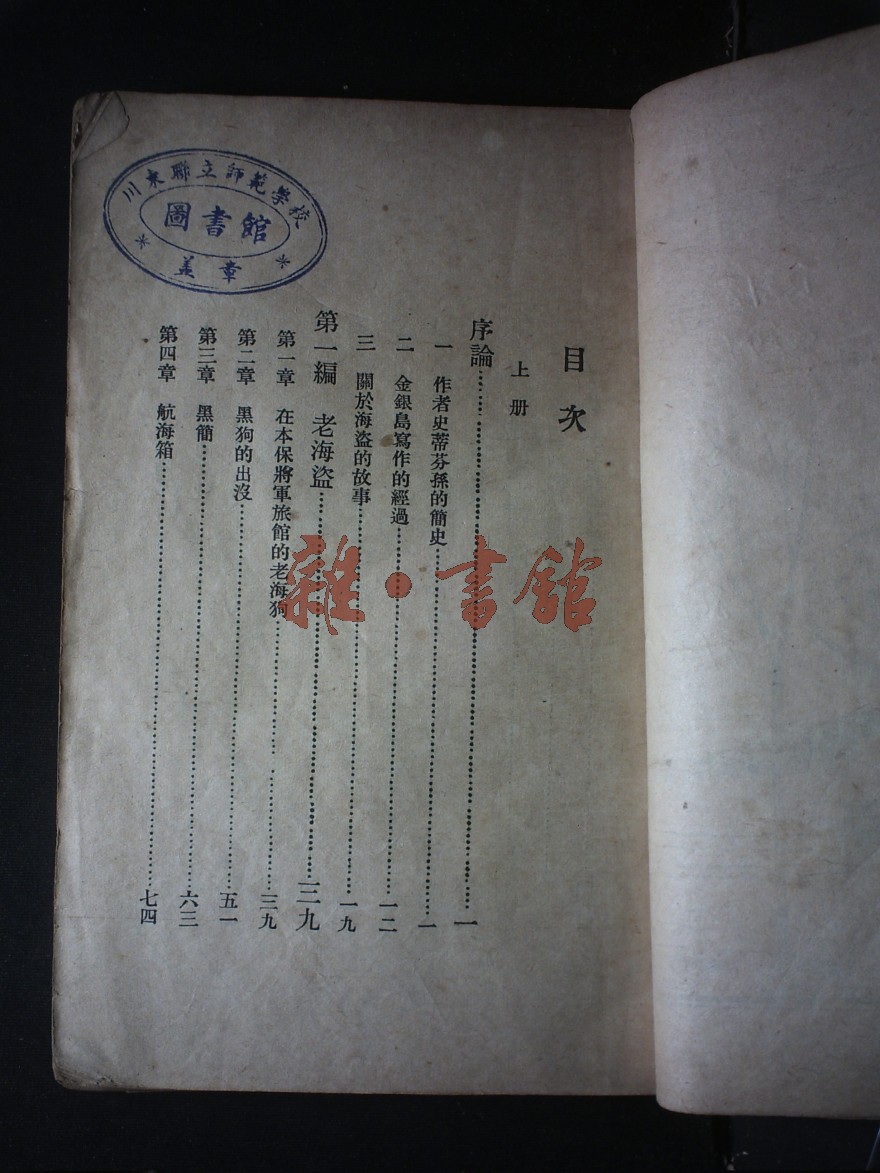 目次
上册
序論……一
一 作者史蒂芬孫的簡史……一
二 金銀島寫作的經過……一二
三 關於海盜的故事……一九
第一編 老海盜……三九
第一章 在本保將軍旅館的老海狗……三九
第二章 黑狗的出沒……五一
第三章 黑簡……六三
第四章 航海箱……七四
川東聯立師範學校
圖書館
蓋章
雜·書館